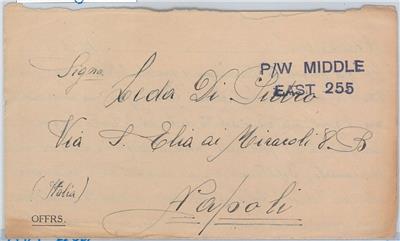 P/W MIDDLE
EAST 255
Signa
Leda Di Pietro
Via S. Elia ai Miracoli 8. B
(Italia)
Napoli
OFFRS.